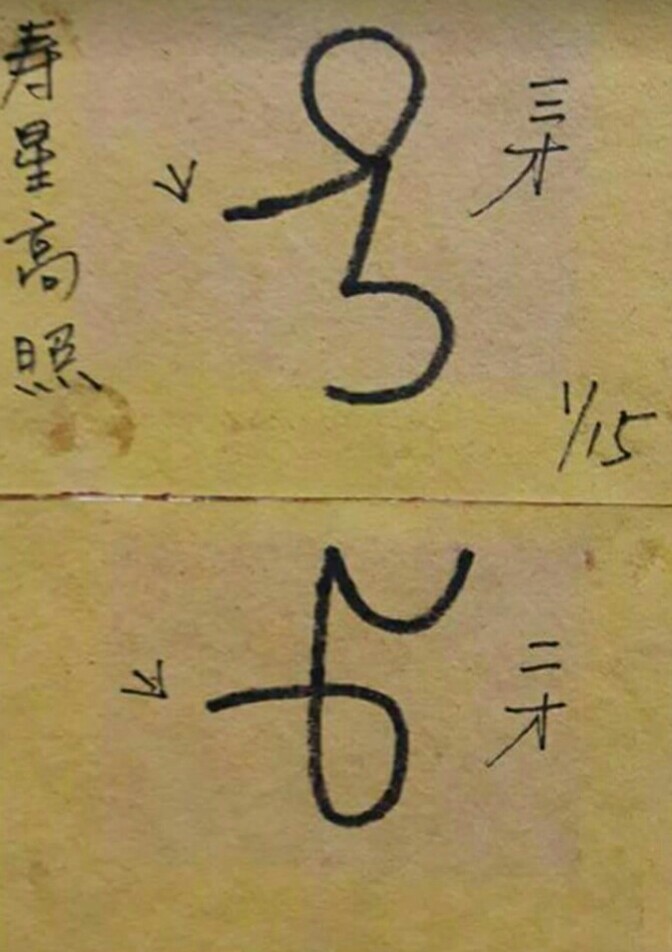 寿星高照
三才
1/15
二才